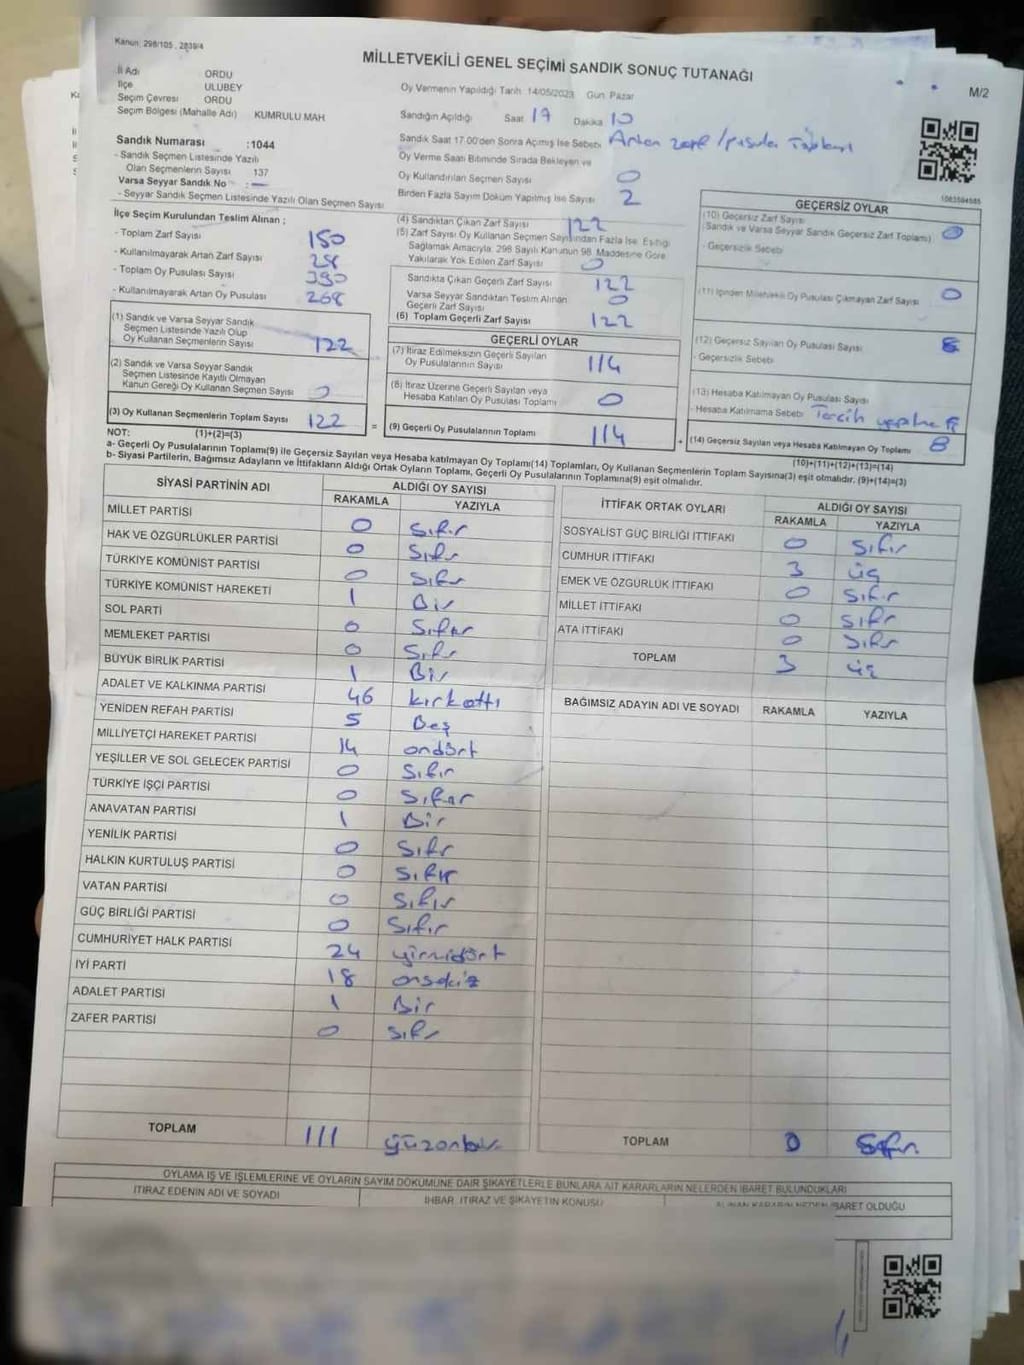 Kanun: 298/105 , 2839/4
MİLLETVEKİLİ GENEL SEÇİMİ SANDIK SONUÇ TUTANAĞI
M/2
İl Adı ORDU
İlçe ULUBEY
Seçim Çevresi ORDU
Seçim Bölgesi (Mahalle Adı) KUMRULU MAH
Sandık Numarası :1044
- Sandık Seçmen Listesinde Yazılı
Olan Seçmenlerin Sayısı 137
Varsa Seyyar Sandık No : —
- Seyyar Sandık Seçmen Listesinde Yazılı Olan Seçmen Sayısı
Oy Vermenin Yapıldığı Tarih 14/05/2023 Gün Pazar
Sandığın Açıldığı Saat 17 Dakika 10
Sandık Saat 17:00'den Sonra Açılmış İse Sebebi Artan zarf/pusula Toplamı
Oy Verme Saati Bitiminde Sırada Bekleyen ve
Oy Kullandırılan Seçmen Sayısı 0
Birden Fazla Sayım Döküm Yapılmış İse Sayısı 2
1083584585
İlçe Seçim Kurulundan Teslim Alınan ;
- Toplam Zarf Sayısı 150
- Kullanılmayarak Artan Zarf Sayısı 28
- Toplam Oy Pusulası Sayısı 390
- Kullanılmayarak Artan Oy Pusulası 268
(1) Sandık ve Varsa Seyyar Sandık
Seçmen Listesinde Yazılı Olup
Oy Kullanan Seçmenlerin Sayısı 122
(2) Sandık ve Varsa Seyyar Sandık
Seçmen Listesinde Kayıtlı Olmayan
Kanun Gereği Oy Kullanan Seçmen Sayısı 0
(3) Oy Kullanan Seçmenlerin Toplam Sayısı 122
(4) Sandıktan Çıkan Zarf Sayısı 122
(5) Zarf Sayısı Oy Kullanan Seçmen Sayısından Fazla İse, Eşitliği
Sağlamak Amacıyla, 298 Sayılı Kanunun 98. Maddesine Göre
Yakılarak Yok Edilen Zarf Sayısı 0
Sandıkta Çıkan Geçerli Zarf Sayısı 122
Varsa Seyyar Sandıktan Teslim Alınan
Geçerli Zarf Sayısı 0
(6) Toplam Geçerli Zarf Sayısı 122
GEÇERLİ OYLAR
(7) İtiraz Edilmeksizin Geçerli Sayılan
Oy Pusulalarının Sayısı 114
(8) İtiraz Üzerine Geçerli Sayılan veya
Hesaba Katılan Oy Pusulası Toplamı 0
= (9) Geçerli Oy Pusulalarının Toplamı 114
GEÇERSİZ OYLAR
(10) Geçersiz Zarf Sayısı
(Sandık ve Varsa Seyyar Sandık Geçersiz Zarf Toplamı) 0
- Geçersizlik Sebebi
(11) İçinden Milletvekili Oy Pusulası Çıkmayan Zarf Sayısı 0
(12) Geçersiz Sayılan Oy Pusulası Sayısı 8
- Geçersizlik Sebebi
(13) Hesaba Katılmayan Oy Pusulası Sayısı
- Hesaba Katılmama Sebebi Tercih
+ (14) Geçersiz Sayılan veya Hesaba Katılmayan Oy Toplamı 8
NOT: (1)+(2)=(3)
(10)+(11)+(12)+(13)=(14)
a- Geçerli Oy Pusulalarının Toplamı(9) ile Geçersiz Sayılan veya Hesaba katılmayan Oy Toplamı(14) Toplamları, Oy Kullanan Seçmenlerin Toplam Sayısına(3) eşit olmalıdır. (9)+(14)=(3)
b- Siyasi Partilerin, Bağımsız Adayların ve İttifakların Aldığı Ortak Oyların Toplamı, Geçerli Oy Pusulalarının Toplamına(9) eşit olmalıdır.
SİYASİ PARTİNİN ADI ALDIĞI OY SAYISI
RAKAMLA YAZIYLA
MİLLET PARTİSİ 0 Sıfır
HAK VE ÖZGÜRLÜKLER PARTİSİ 0 Sıfır
TÜRKİYE KOMÜNİST PARTİSİ 0 Sıfır
TÜRKİYE KOMÜNİST HAREKETİ 1 Bir
SOL PARTİ 0 Sıfır
MEMLEKET PARTİSİ 0 Sıfır
BÜYÜK BİRLİK PARTİSİ 1 Bir
ADALET VE KALKINMA PARTİSİ 46 kırkaltı
YENİDEN REFAH PARTİSİ 5 Beş
MİLLİYETÇİ HAREKET PARTİSİ 14 ondört
YEŞİLLER VE SOL GELECEK PARTİSİ 0 Sıfır
TÜRKİYE İŞÇİ PARTİSİ 0 Sıfır
ANAVATAN PARTİSİ 1 Bir
YENİLİK PARTİSİ 0 Sıfır
HALKIN KURTULUŞ PARTİSİ 0 Sıfır
VATAN PARTİSİ 0 Sıfır
GÜÇ BİRLİĞİ PARTİSİ 0 Sıfır
CUMHURİYET HALK PARTİSİ 24 yirmidört
İYİ PARTİ 18 onsekiz
ADALET PARTİSİ 1 Bir
ZAFER PARTİSİ 0 sıfır
TOPLAM 111 yüzonbir
İTTİFAK ORTAK OYLARI ALDIĞI OY SAYISI
RAKAMLA YAZIYLA
SOSYALİST GÜÇ BİRLİĞİ İTTİFAKI 0 Sıfır
CUMHUR İTTİFAKI 3 üç
EMEK VE ÖZGÜRLÜK İTTİFAKI 0 Sıfır
MİLLET İTTİFAKI 0 Sıfır
ATA İTTİFAKI 0 Sıfır
TOPLAM 3 üç
BAĞIMSIZ ADAYIN ADI VE SOYADI RAKAMLA YAZIYLA
TOPLAM 0 Sıfır
OYLAMA İŞ VE İŞLEMLERİNE VE OYLARIN SAYIM DÖKÜMÜNE DAİR ŞİKAYETLERLE BUNLARA AİT KARARLARIN NELERDEN İBARET BULUNDUKLARI
İTİRAZ EDENİN ADI VE SOYADI İHBAR, İTİRAZ VE ŞİKAYETİN KONUSU ALINAN KARARIN NEDEN İBARET OLDUĞU